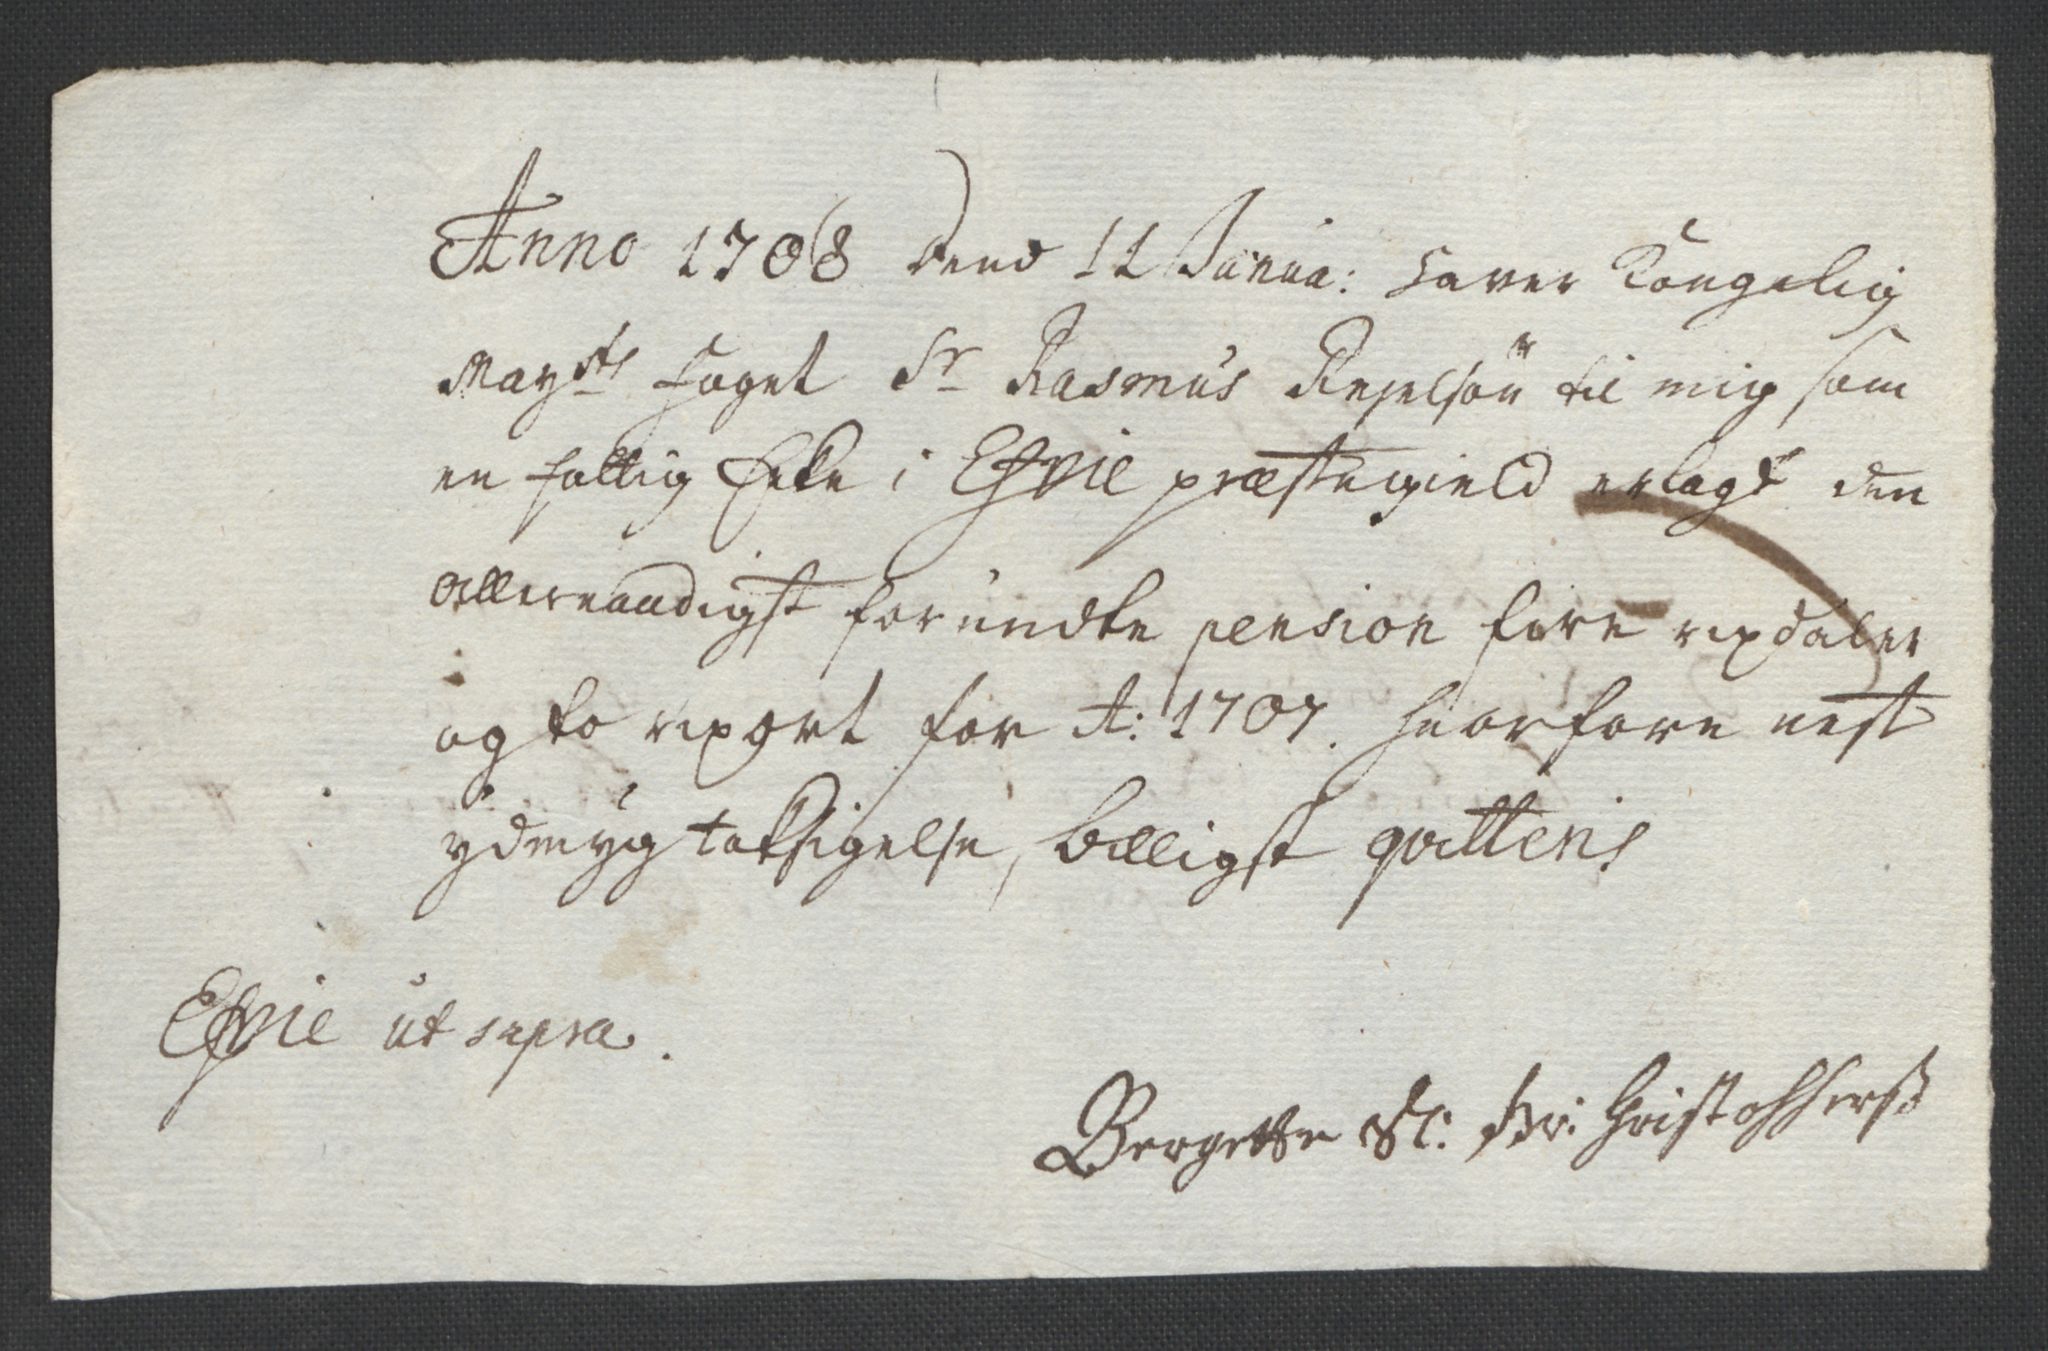 Anno 1708 dend 11 Janua: haver Kongelig
Mayts foget Sr Rasmus til mig som
en fattig Enke i Efvie præstegield erlagt den
allernaadigst forundte pension fire rixdaler
og to rixort for A: 1707. huorfore nest
ydmyg taksigelse, billigst qvittens
Efvie ut supra.
Bergette Sl: Christophersß